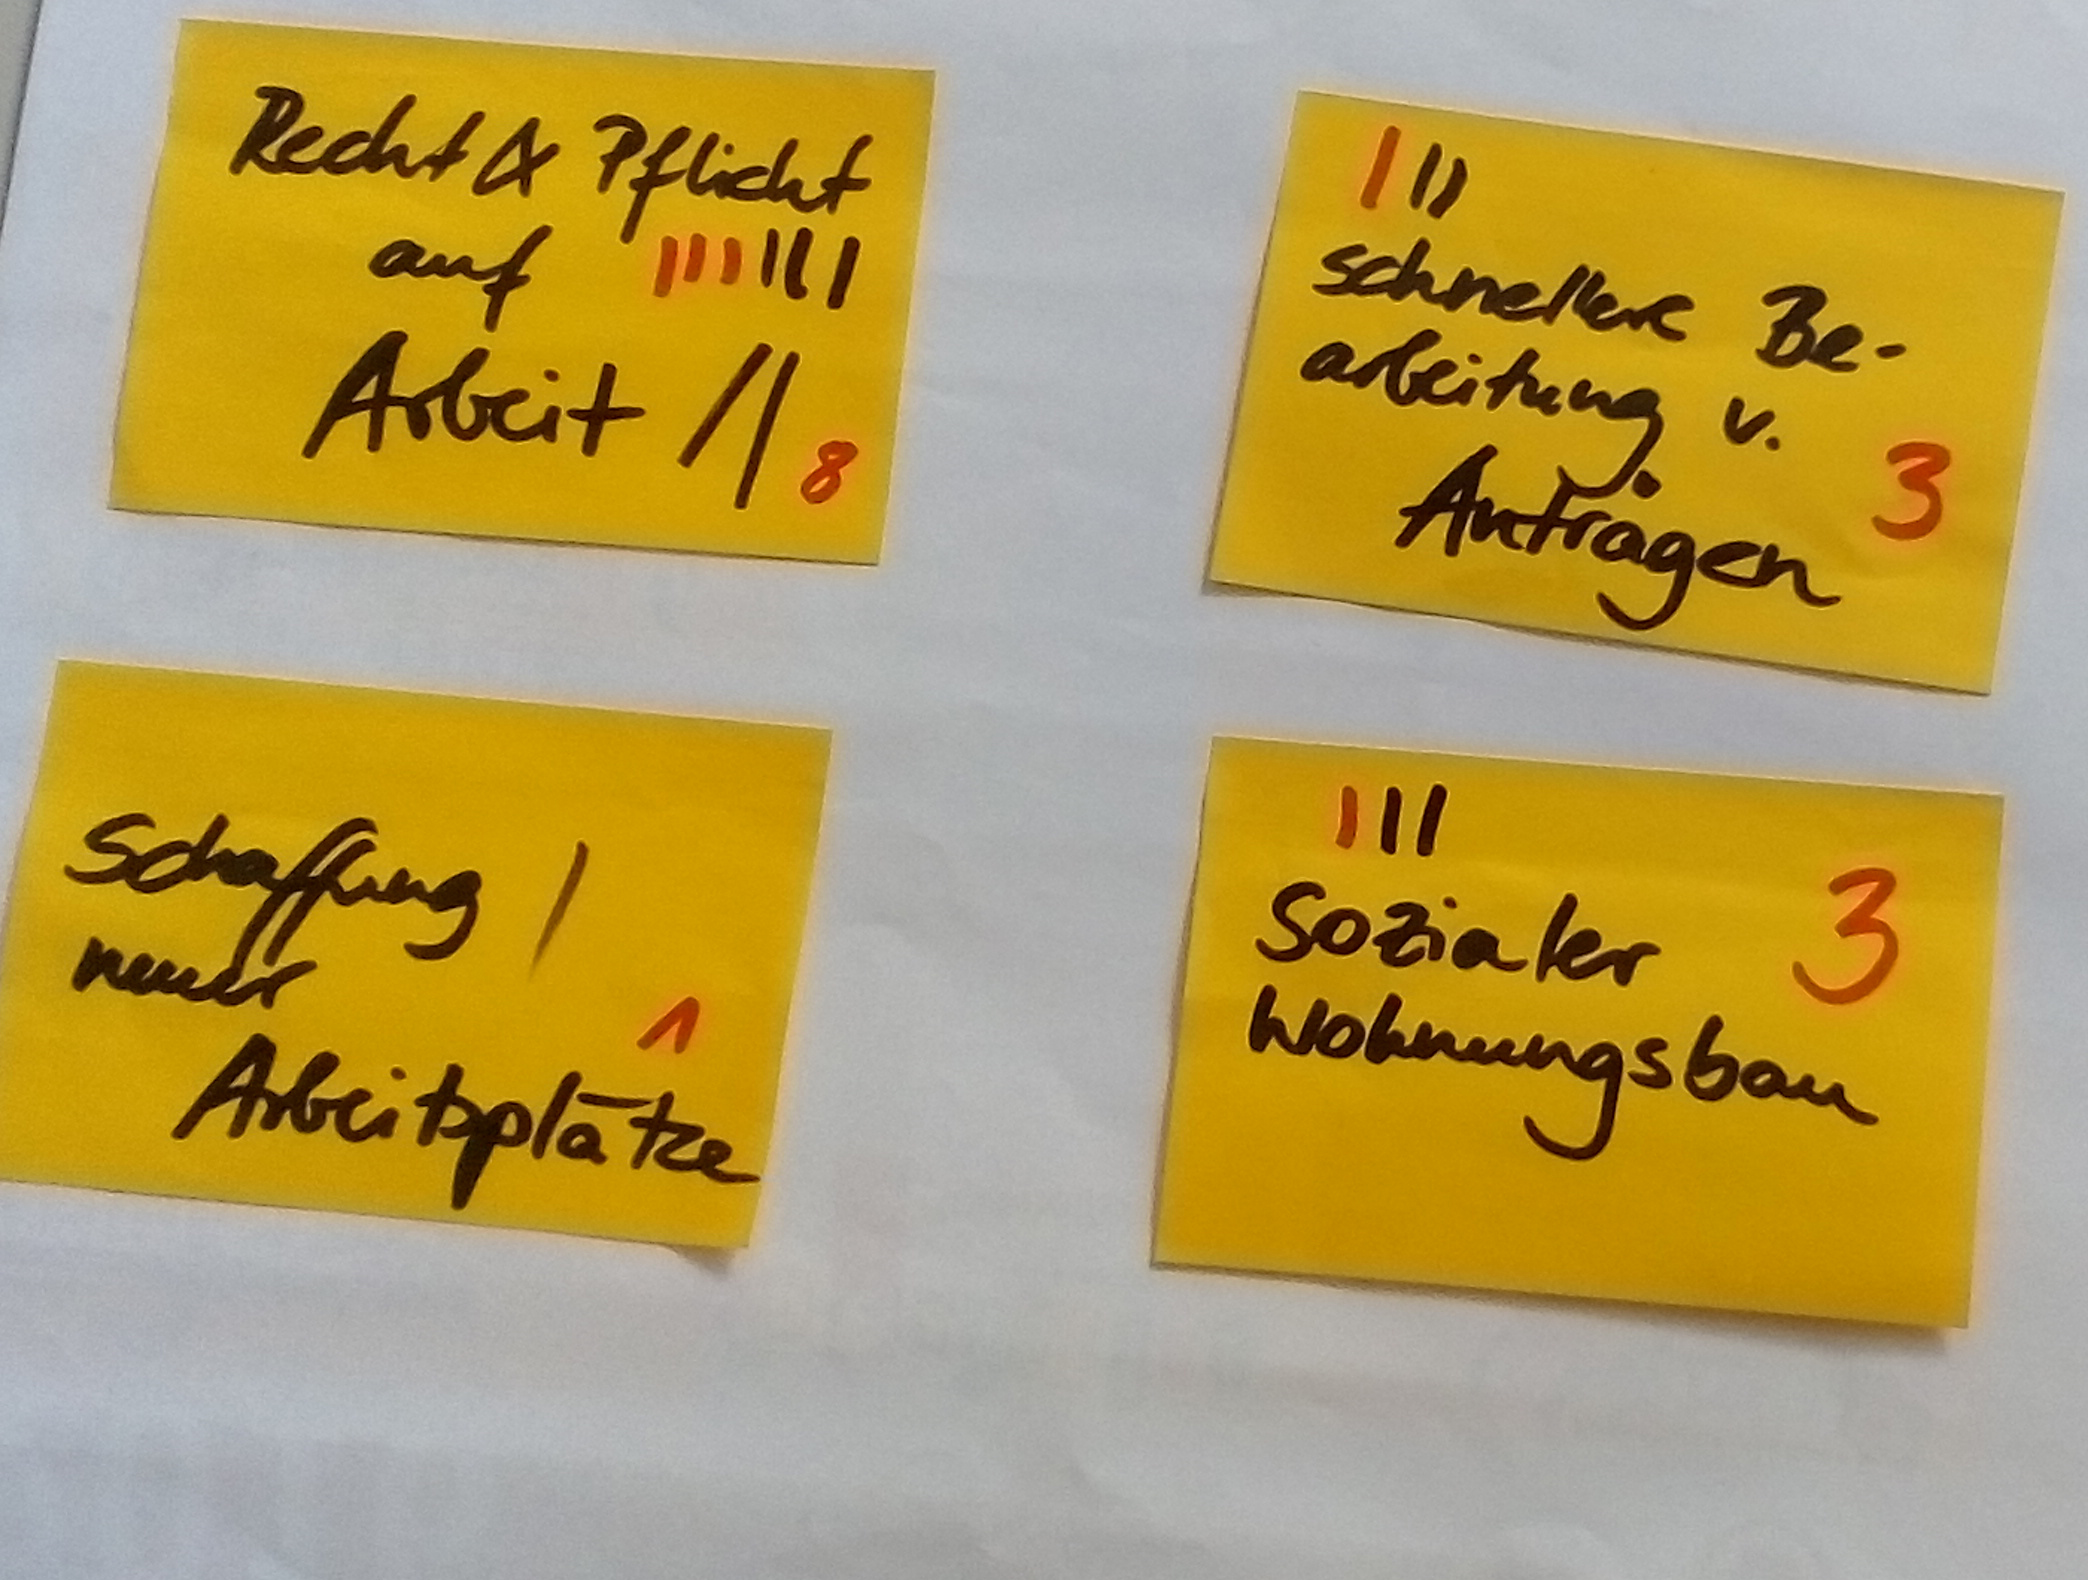 Recht & Pflicht
auf |||||||
Arbeit || 8
||| 
schnellere Be-
arbeitung v.
Anträgen 3
Schaffung |
neuer
1
Arbeitsplätze
|||
Sozialer 3
Wohnungsbau